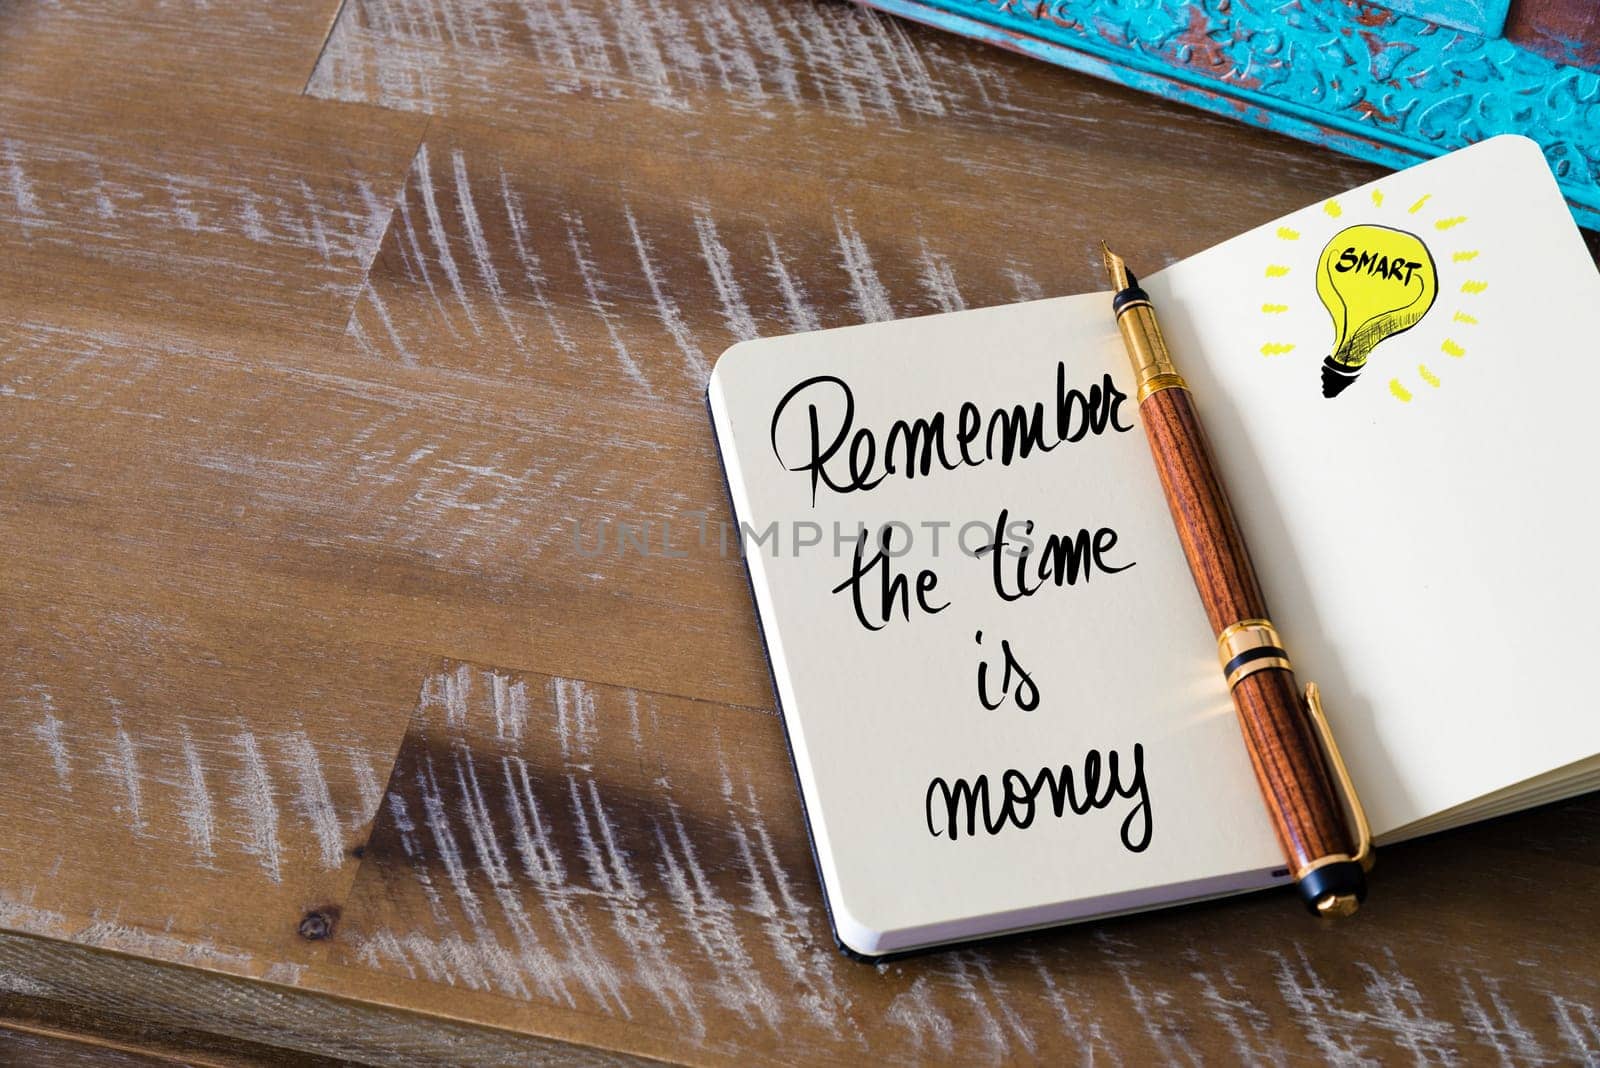 SMART
Remember
the time
is
money
UNLIMPHOTOS